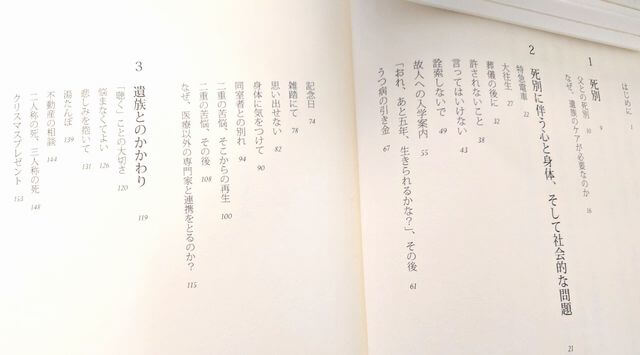 はじめに 1
1 死別 9
父との死別 10
なぜ、遺族のケアが必要なのか 16
2 死別に伴う心と身体、そして社会的な問題 21
特急電車 22
大往生 27
葬儀の後に 32
許されないこと 38
言ってはいけない 43
詮索しないで 49
故人への入学案内 55
「おれ、あと五年、生きられるかな？」、その後 61
うつ病の引き金 67
記念日 74
雑踏にて 78
思い出せない 82
身体に気をつけて 90
同室者との別れ 94
二重の苦悩、そこからの再生 100
二重の苦悩、その後 108
なぜ、医療以外の専門家と連携をとるのか？ 115
3 遺族とのかかわり 119
「聴く」ことの大切さ 120
悩まなくてよい 126
悲しみを抱いて 131
湯たんぽ 139
不動産の相談 144
二人称の死、三人称の死 148
クリスマスプレゼント 153